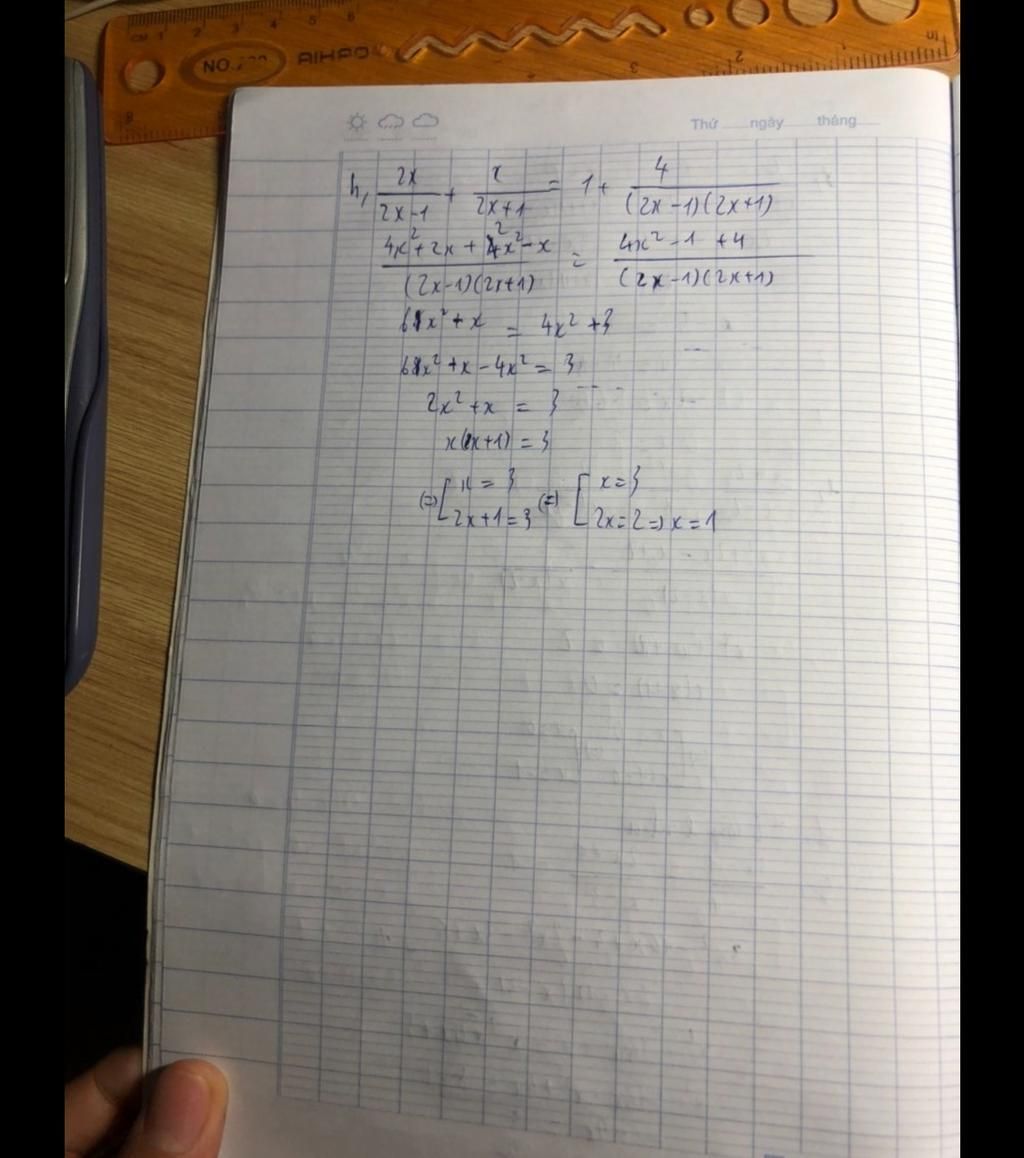 NO.
AIHAO
Thứ ngày tháng
h, 2x/(2x-1) + x/(2x+1) = 1 + 4/((2x-1)(2x+1))
(4x²+2x+2x²-x)/((2x-1)(2x+1)) = (4x²-1+4)/((2x-1)(2x+1))
6x²+x = 4x²+3
6x²+x-4x² = 3
2x²+x = 3
x(2x+1) = 3
(=) [ x = 3 (=) [ x=3
2x+1=3 2x=2=>x=1